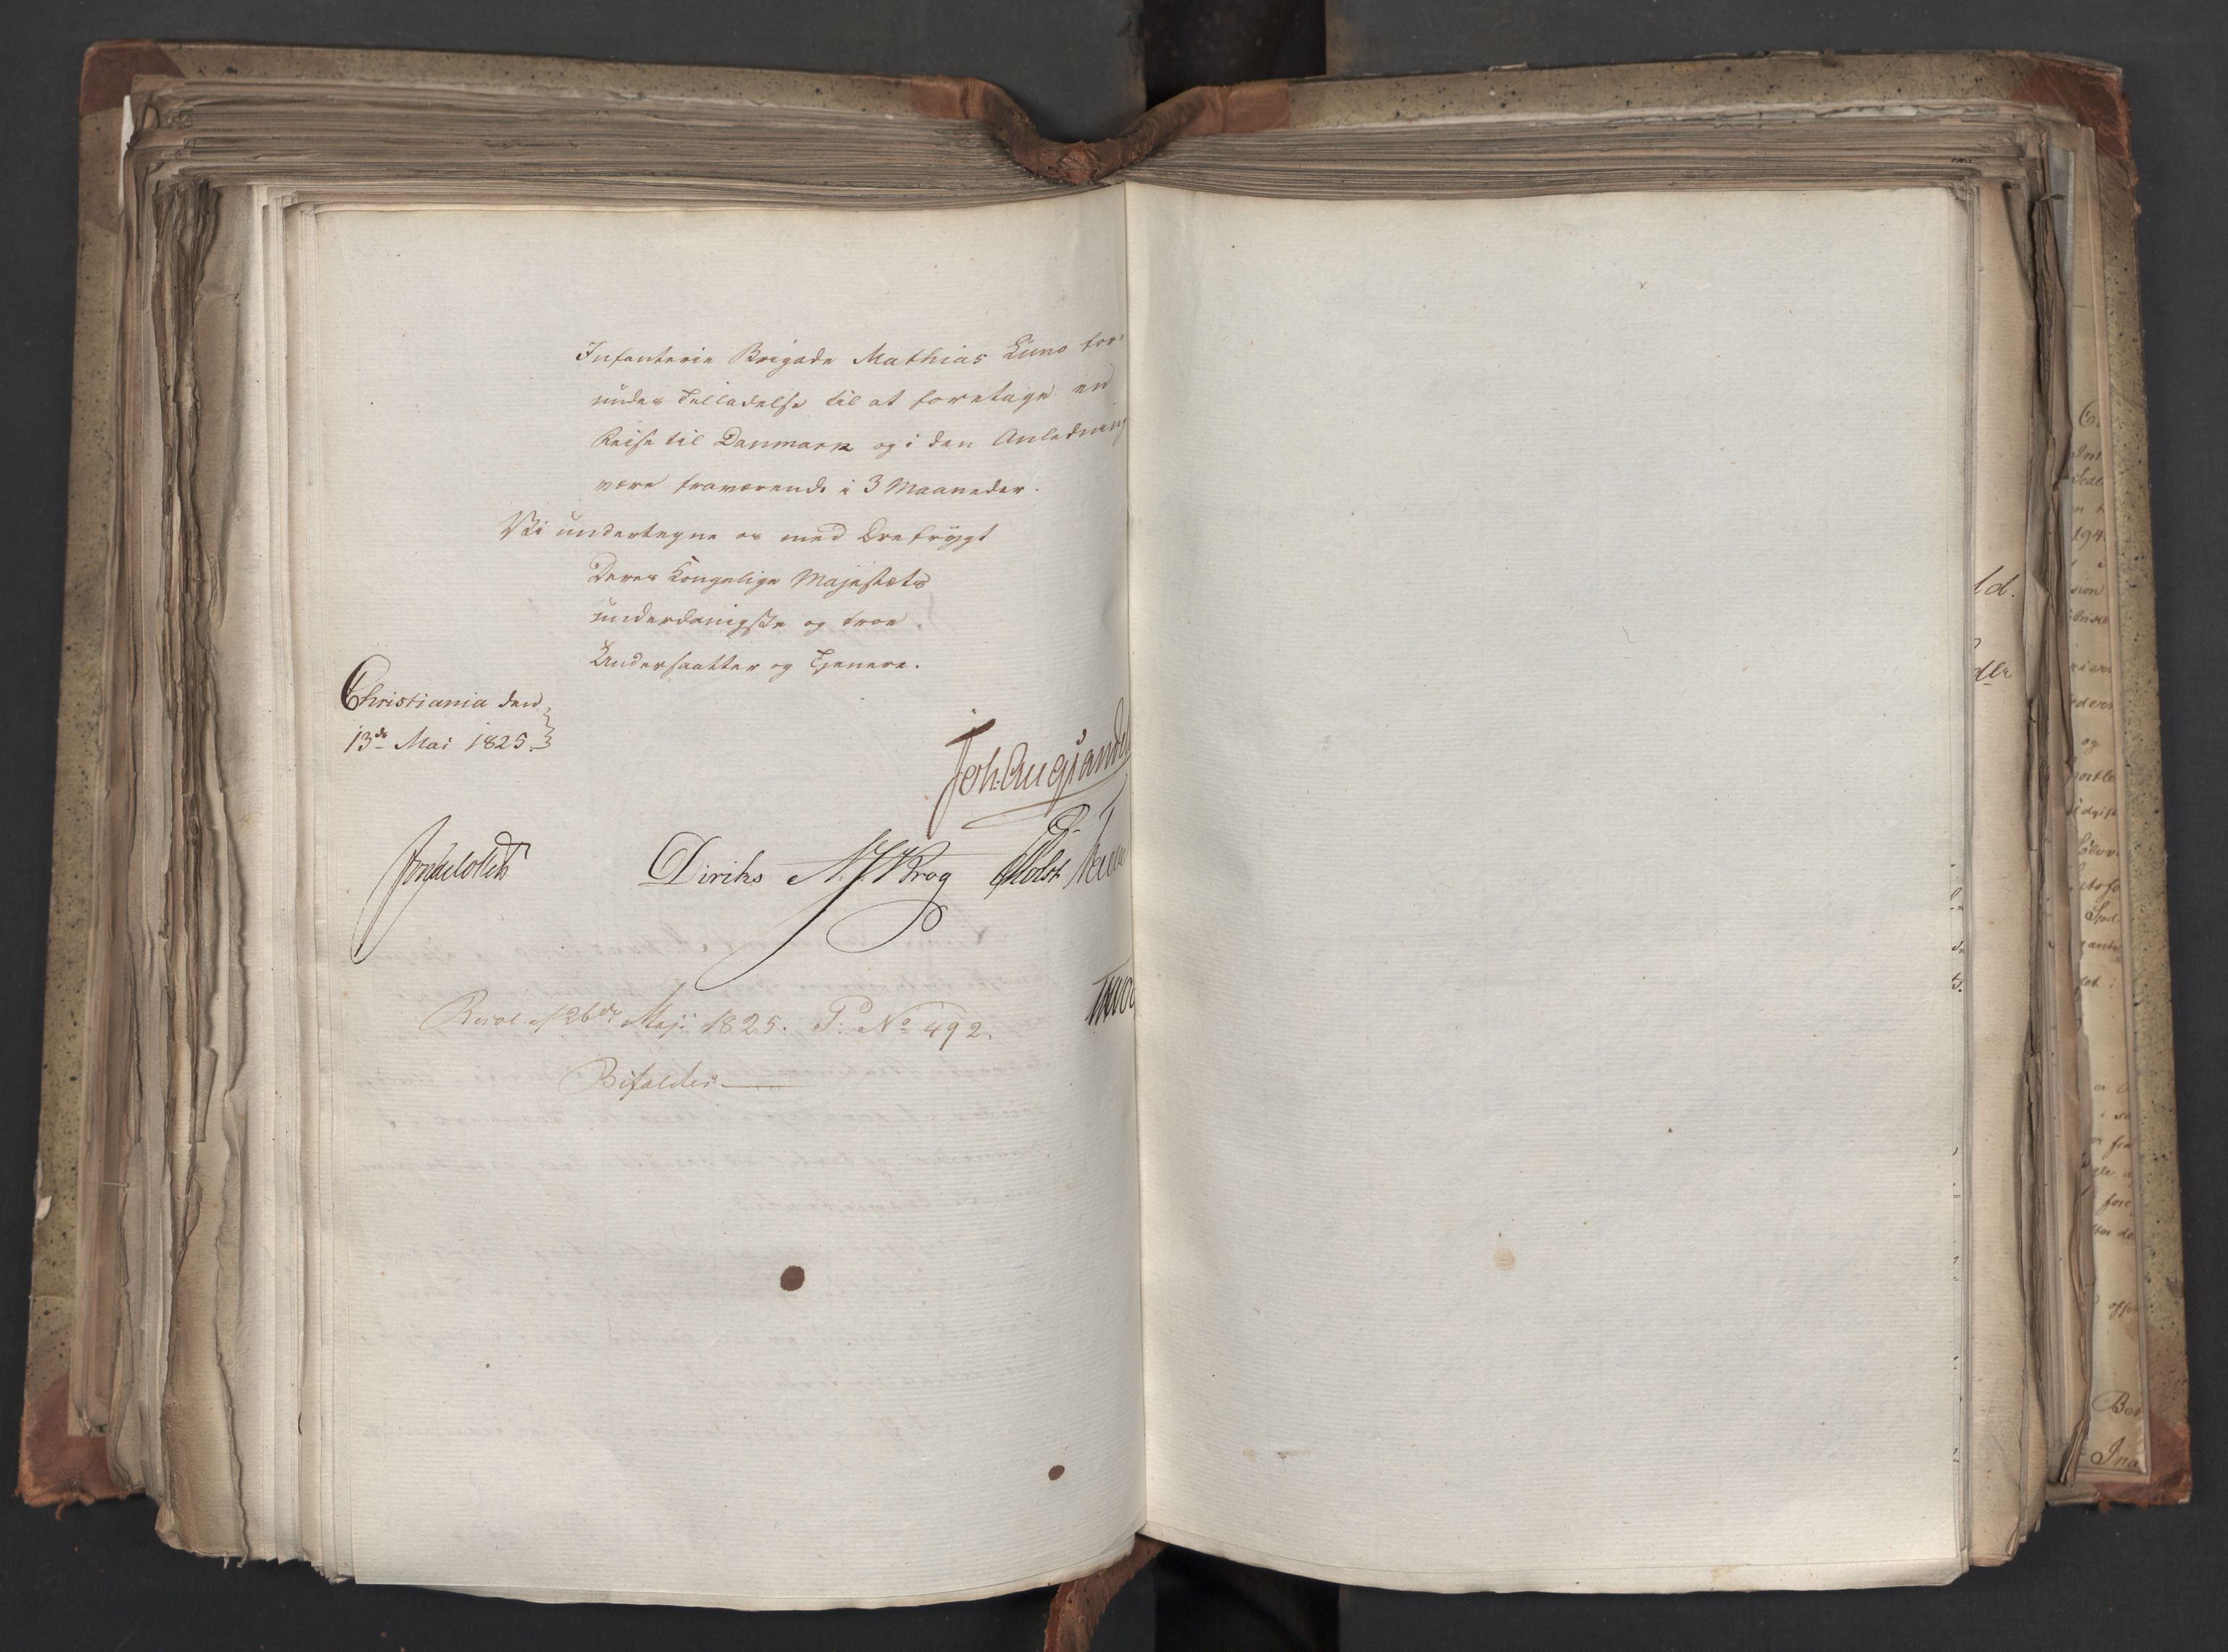 Infanterie Brigade Mathias Luno for
undes Tilladelse til at foretage en
Reise til Danmark og i den Anledning
være fraværende i 3 Maaneder.
Vi undertegne os med Ærefrygt
Deres Kongelige Majestæts
underdanigste og troe
Undersaatter og Tjenere.
Christiania den
13de Mai 1825.
Joh. Aug Sandel
Jonas Collett
Diriks
Krog
Holst
Resol. af 26de Maji 1825. P: No 492.
Bifaldes